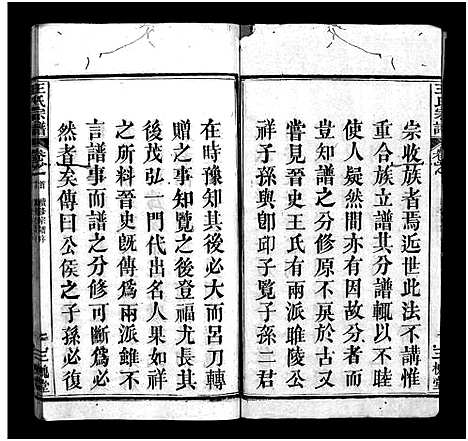 王氏宗譜
宗收族者焉近世此法不講惟
重合族立譜其分譜輒以不睦
使人疑然間亦有因故分者而
分修之實則無異於古又
嘗覽晉史王氏有兩派睢陵公
祥子孫與即邱子覽子孫二君
三槐堂
在時豫知其後必大而呂刀轉
贈之事知覽之後登福尤長其
後茂弘一門代出名人果如祥
之所料晉史既傳為兩派雖不
言譜事而譜之分修可斷為必
然者矣傳曰公侯之子孫必復
王氏宗譜
三槐堂